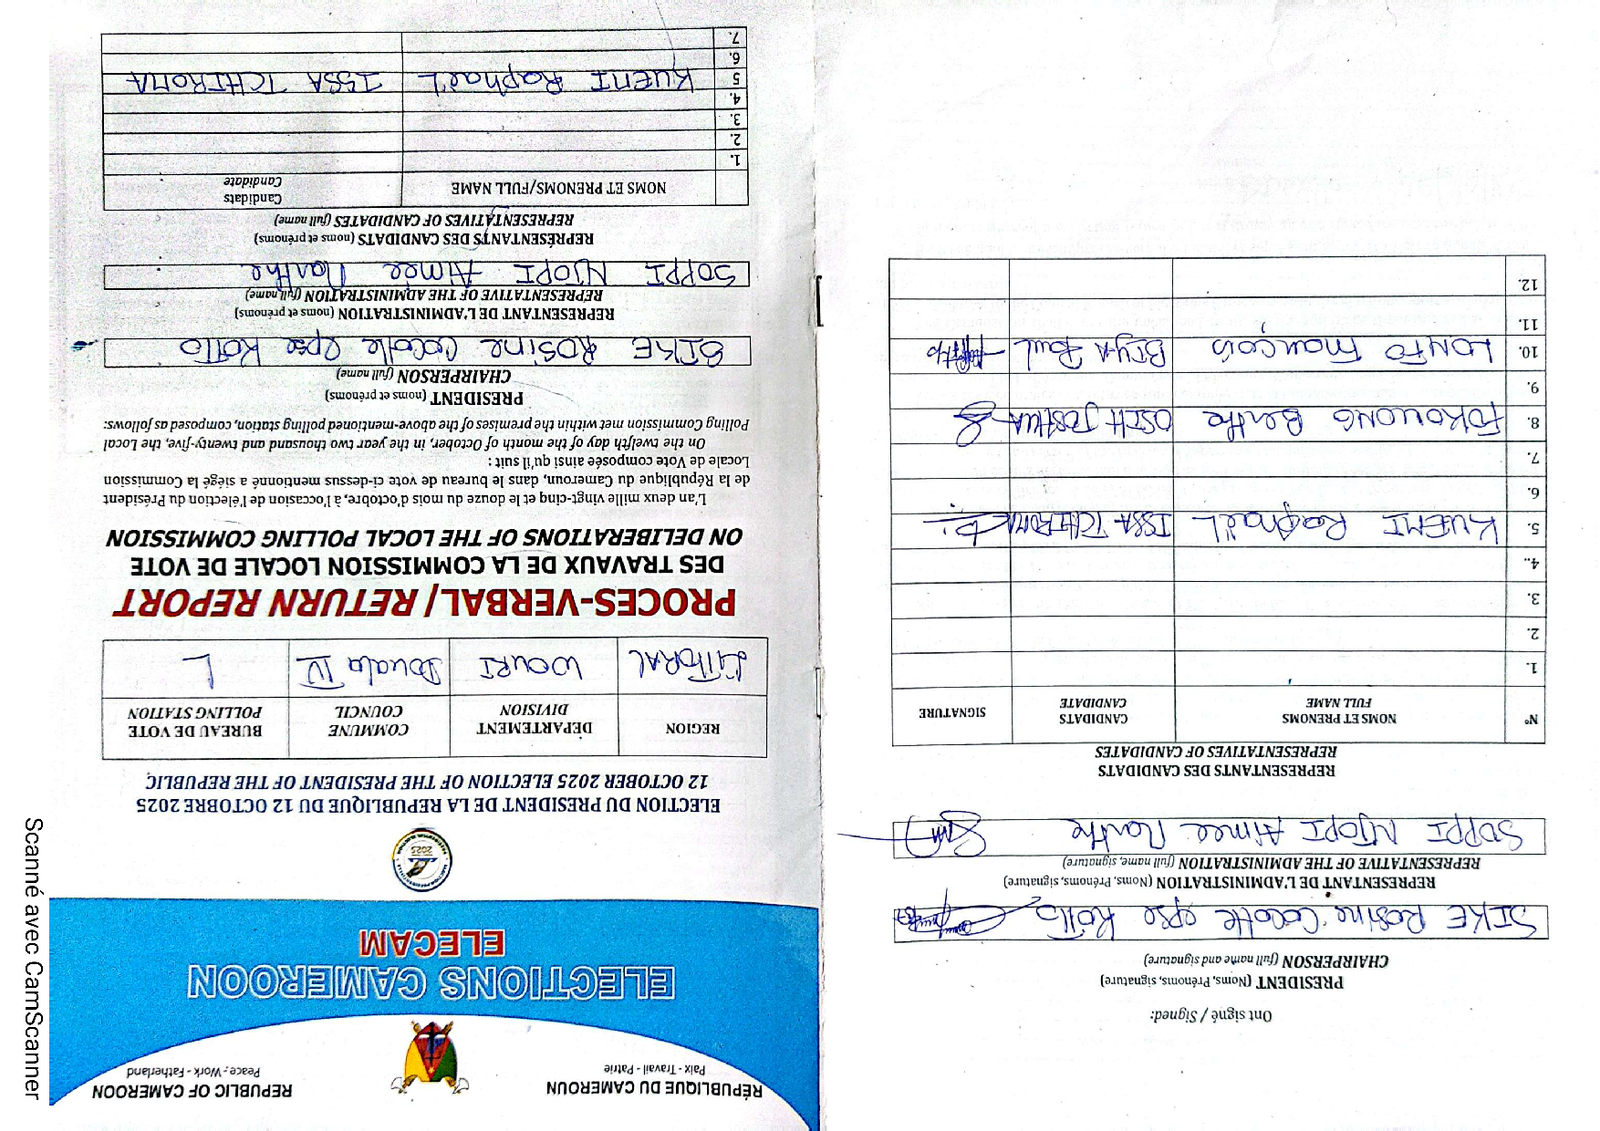 RÉPUBLIQUE DU CAMEROUN
Paix - Travail - Patrie
REPUBLIC OF CAMEROON
Peace - Work - Fatherland
ELECTIONS CAMEROON
ELECAM
ELECTION DU PRESIDENT DE LA REPUBLIQUE DU 12 OCTOBRE 2025
12 OCTOBER 2025 ELECTION OF THE PRESIDENT OF THE REPUBLIC
REGION
DÉPARTEMENT
DIVISION
COMMUNE
COUNCIL
BUREAU DE VOTE
POLLING STATION
LITTORAL
WOURI
Douala IV
PROCES-VERBAL/ RETURN REPORT
DES TRAVAUX DE LA COMMISSION LOCALE DE VOTE
ON DELIBERATIONS OF THE LOCAL POLLING COMMISSION
L'an deux mille vingt-cinq et le douze du mois d'octobre, à l'occasion de l'élection du Président
de la République du Cameroun, dans le bureau de vote ci-dessus mentionné a siégé la Commission
Locale de Vote composée ainsi qu'il suit :
On the twelfth day of the month of October, in the year two thousand and twenty-five, the Local
Polling Commission met within the premises of the above-mentioned polling station, composed as follows:
PRESIDENT (noms et prénoms)
CHAIRPERSON (full name)
SIKE ROSINE Cecolle epse KOTTO
REPRESENTANT DE L'ADMINISTRATION (noms et prénoms)
REPRESENTATIVE OF THE ADMINISTRATION (full name)
SOPPI NJOPI Aimée Marthe
REPRÉSENTANTS DES CANDIDATS (noms et prénoms)
REPRESENTATIVES OF CANDIDATES (full name)
NOMS ET PRENOMS/FULL NAME
Candidats
Candidate
1.
2.
3.
4.
5 KUEMI Raphaël ISSA TCHIROMA
6.
7.
Ont signé / Signed:
PRESIDENT (Noms, Prénoms, signature)
CHAIRPERSON (full name and signature)
SIKE Rosine Cecolle epse Kotto
REPRESENTANT DE L'ADMINISTRATION (Noms, Prénoms, signature)
REPRESENTATIVE OF THE ADMINISTRATION (full name, signature)
SOPPI NJOPI Aimée Marthe
REPRESENTANTS DES CANDIDATS
REPRESENTATIVES OF CANDIDATES
N°
NOMS ET PRENOMS
FULL NAME
CANDIDATS
CANDIDATE
SIGNATURE
1.
2.
3.
4..
5. KUEMI Raphaël ISSA TCHIROMA
6.
7.
8. FOKOUONG Berthe OSIH JOSHUA
9.
10. LONFO François BIYA Paul
11.
12.
Scanné avec CamScanner